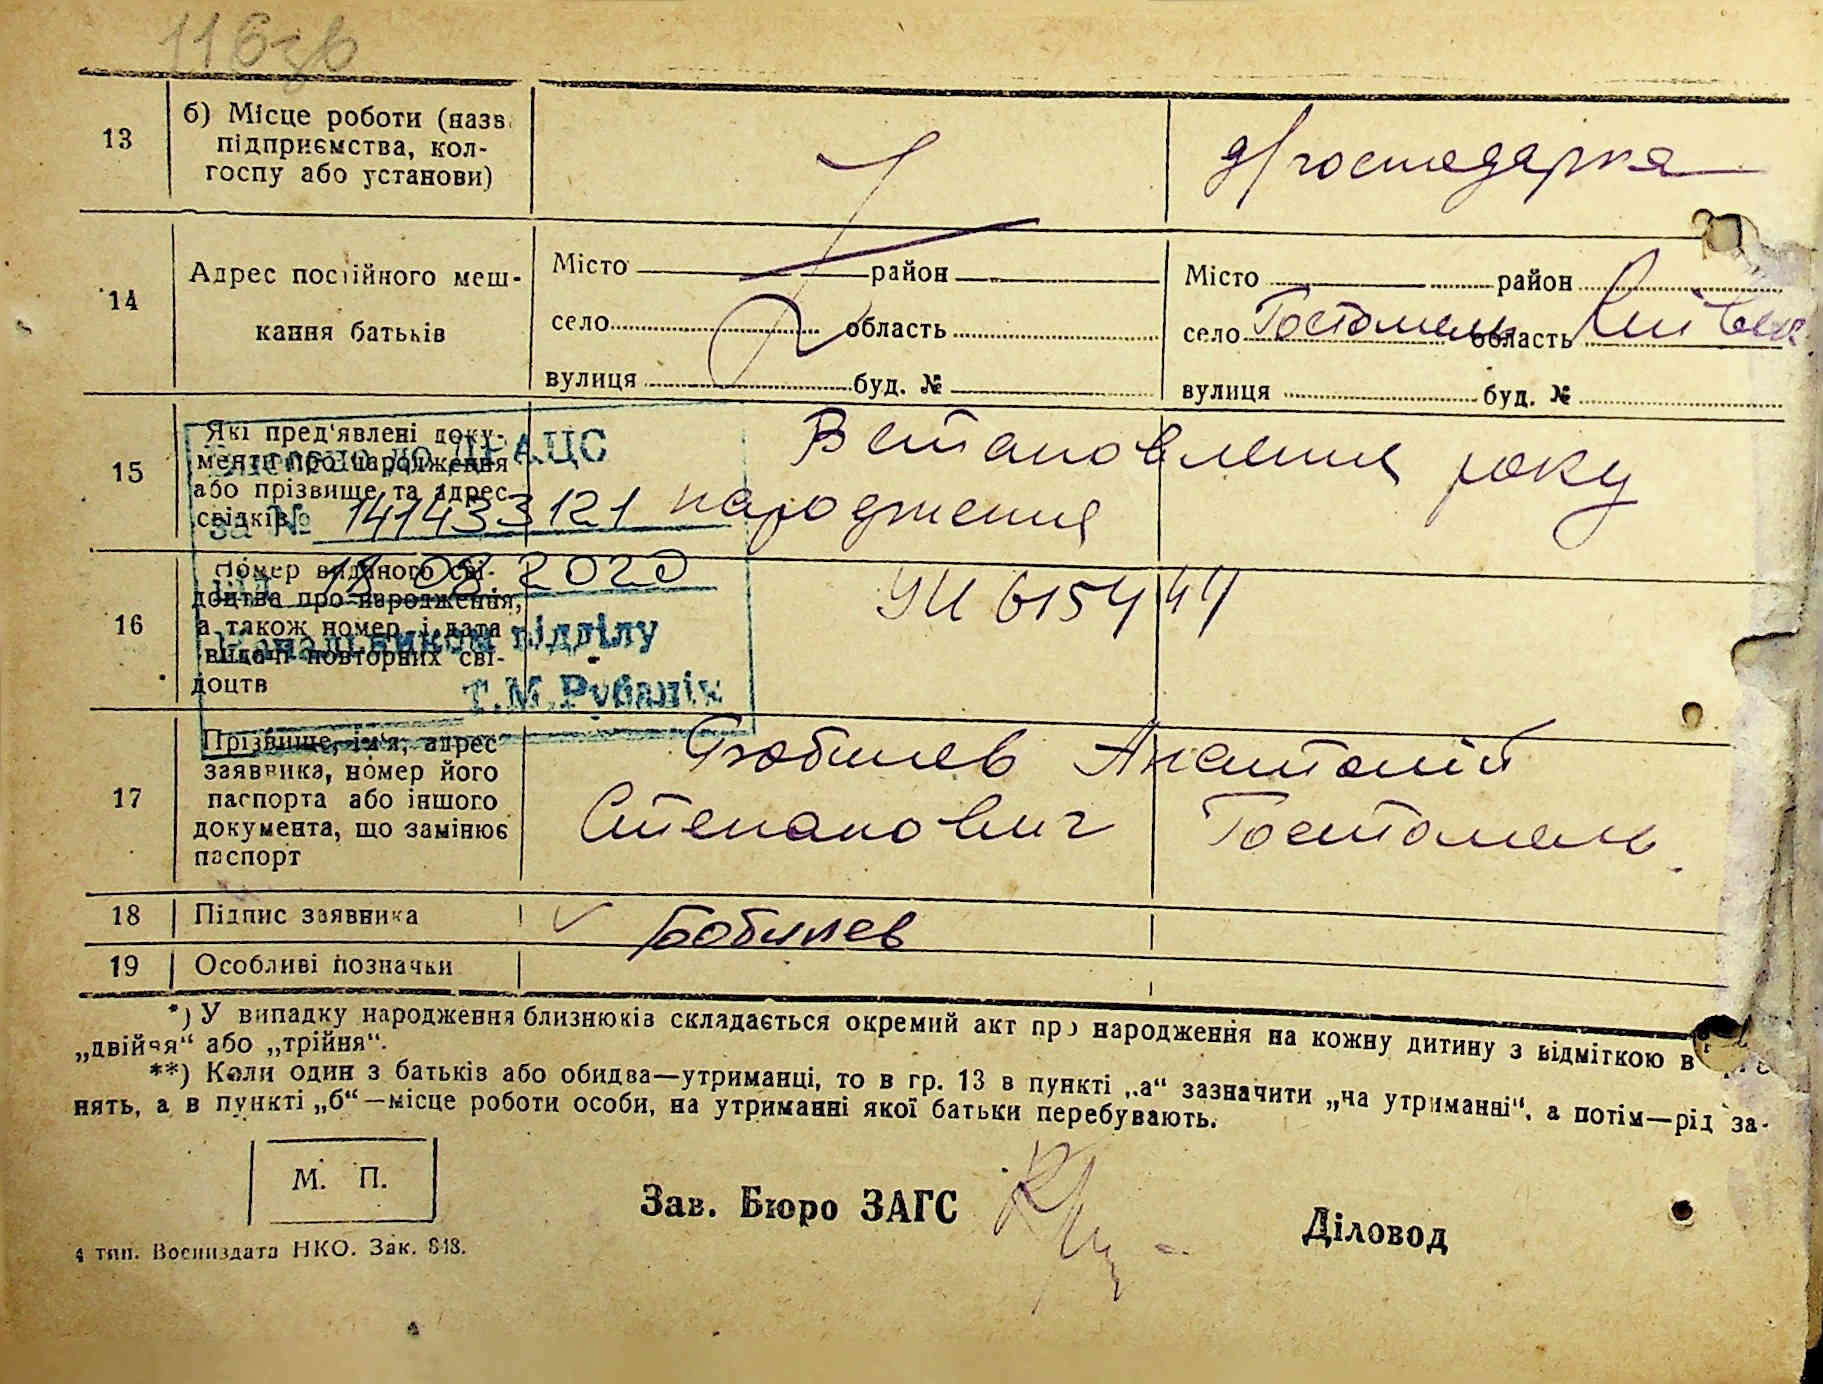 116зв
13
б) Місце роботи (назв.
підприємства, кол-
госпу або установи)
д/господарка
14
Адрес постійного меш-
кання батьків
Місто район
село область
вулиця буд. №
Місто район
село Гостомель область Київськ
вулиця буд. №
15
Які пред'явлені доку-
менти про народження
або прізвище та адрес
свідків
Встановлення року
народження
до ДРАЦС
за № 141433121
18 08 2020
Начальником відділу
Т.М.Рубанік
16
Номер виданого сві-
доцтва про народження,
а також номер і дата
видачі повторних сві-
доцтв
УИ 615444
17
Прізвище, ім'я, адрес
заявника, номер його
паспорта або іншого
документа, що замінює
паспорт
Бобилев Анатолій
Степанович Гостомель
18
Підпис заявника
Бобилев
19
Особливі позначки
*) У випадку народження близнюків складається окремий акт про народження на кожну дитину з відміткою в
„двійня“ або „трійня“.
**) Коли один з батьків або обидва—утриманці, то в гр. 13 в пункті „а“ зазначити „на утриманні“, а потім—рід за-
нять, а в пункті „б“—місце роботи особи, на утриманні якої батьки перебувають.
М. П.
Зав. Бюро ЗАГС
Діловод
4 тип. Воениздата НКО. Зак. 848.